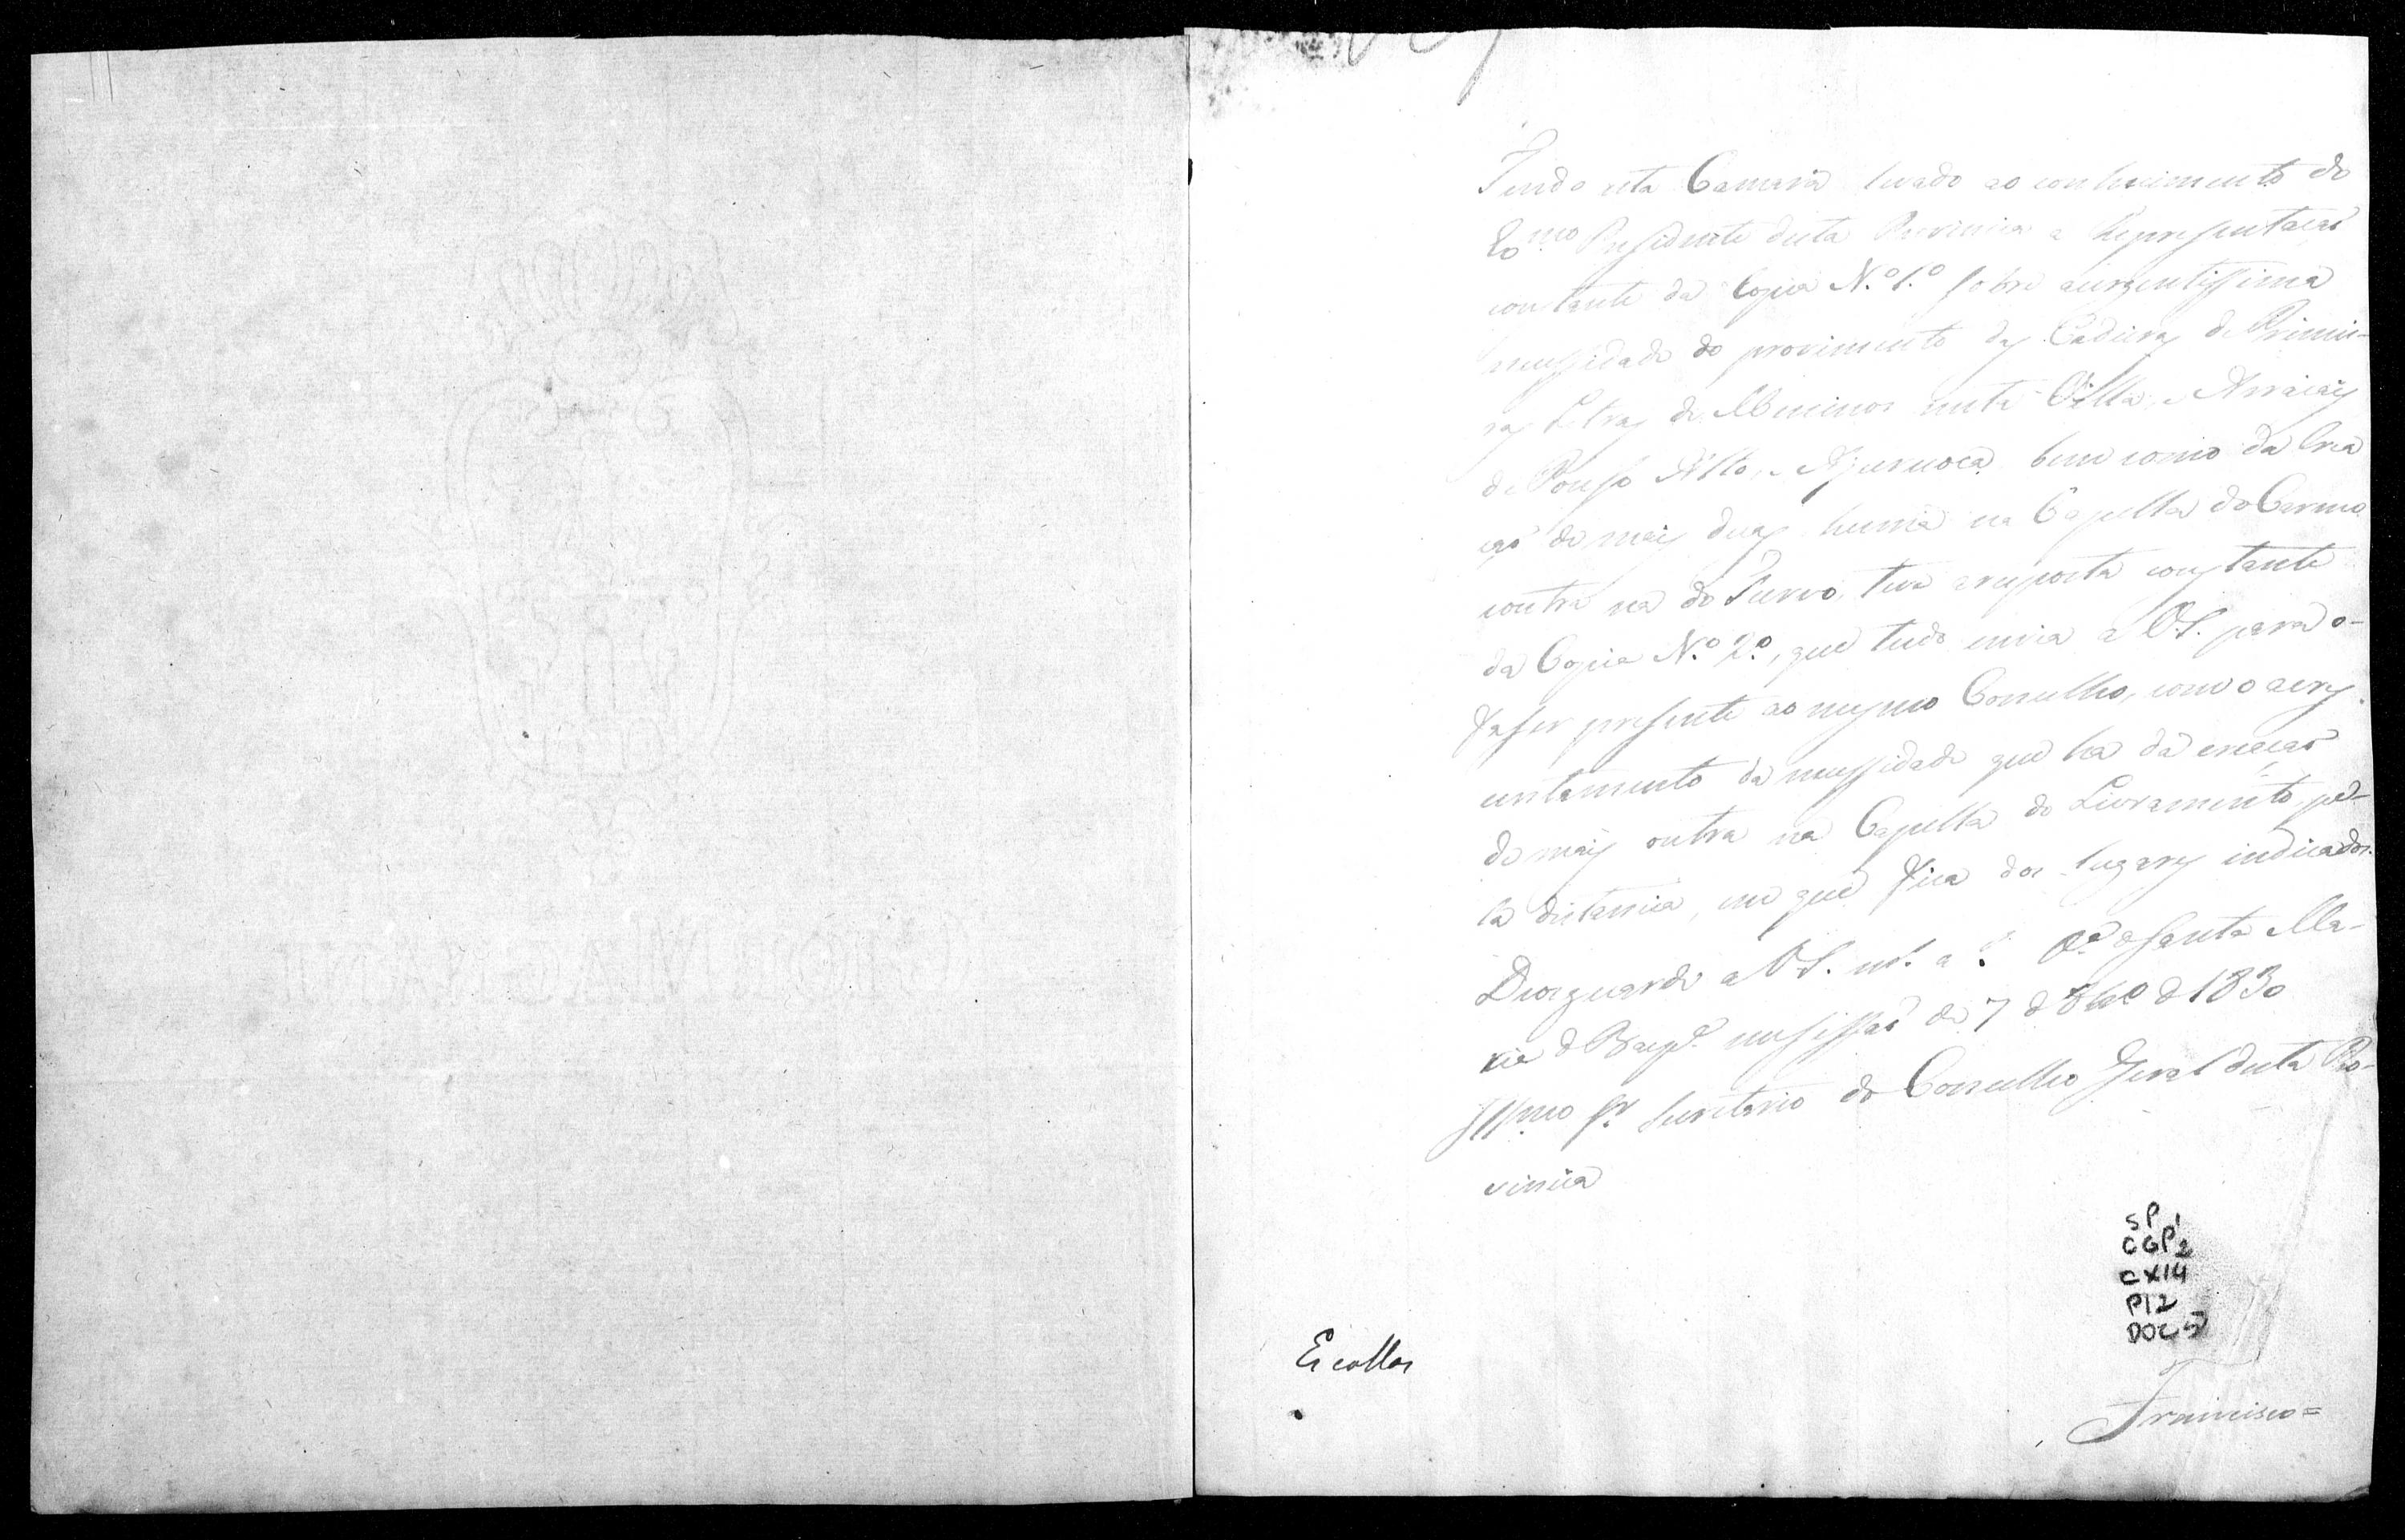 Tendo esta Camara levado ao conhecimento do
Ex.mo Presidente desta Provincia a Representaçaõ
constante da Copia N.º 1.º sobre aurgentissima
necessidade do provimento das Cadeiras de Primei-
ras Letras de Meninos nesta Villa, e Arraiaes
de Pouso Alto, e Ajuruoca, bem como da Crea
çaõ de mais duas huma na Capella do Carmo
eoutra na do Turvo, teve aresposta constante
da Copia N.º 2.º, que tudo envia a V.S. para o-
faser presente ao mesmo Conselho, com o acres
centamento da necessidade que ha da creaçaõ
de mais outra na Capella do Livramento, pe-
la distancia, em que fica dos lugares indicados.
Deos guarde a V.S. m.s a.s V.ª de Santa Ma-
ria de Baep.di em sessaõ de 7 de 8br.o de 1830
Ill.mo Sr. Secretario do Conselho Geral desta Pro-
vincia
SP 1
CGP 2
CX14
P12
DOC 5
Escollas
Francisco=